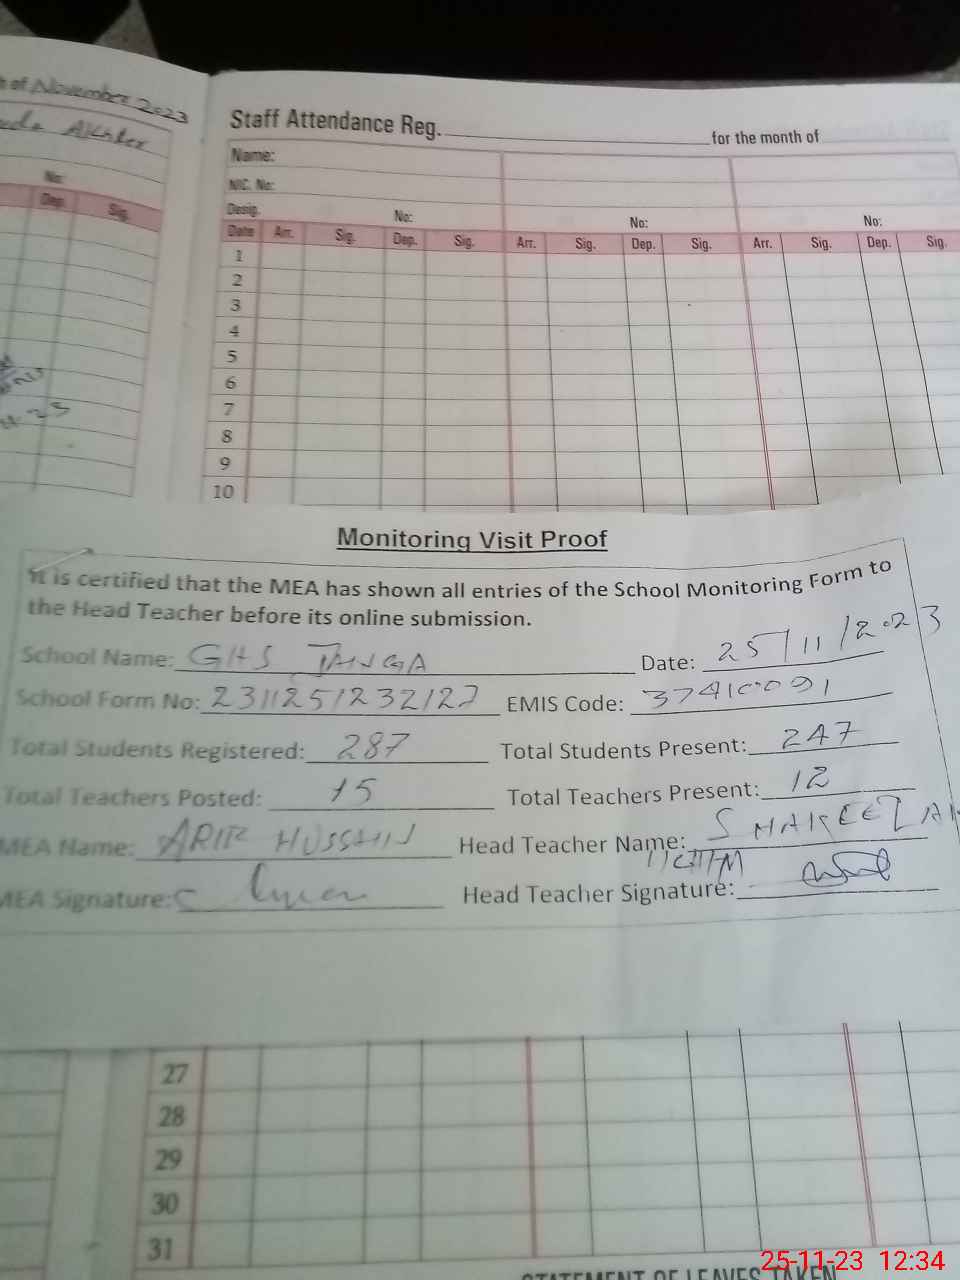 of November 2023
Akhter
No:
Dep. Sig.
Staff Attendance Reg. for the month of
Name:
NIC. No:
Desig. No: No: No:
Date Arr. Sig. Dep. Sig. Arr. Sig. Dep. Sig. Arr. Sig. Dep. Sig.
1
2
3
4
5
6
7
8
9
10
Monitoring Visit Proof
It is certified that the MEA has shown all entries of the School Monitoring Form to
the Head Teacher before its online submission.
School Name: GHS Date: 25/11/2023
School Form No: EMIS Code: 37410091
Total Students Registered: 287 Total Students Present: 247
Total Teachers Posted: 15 Total Teachers Present: 12
MEA Name: HUSSAIN Head Teacher Name:
MEA Signature: Head Teacher Signature:
27
28
29
30
31
STATEMENT OF LEAVES TAKEN
25-11-23 12:34